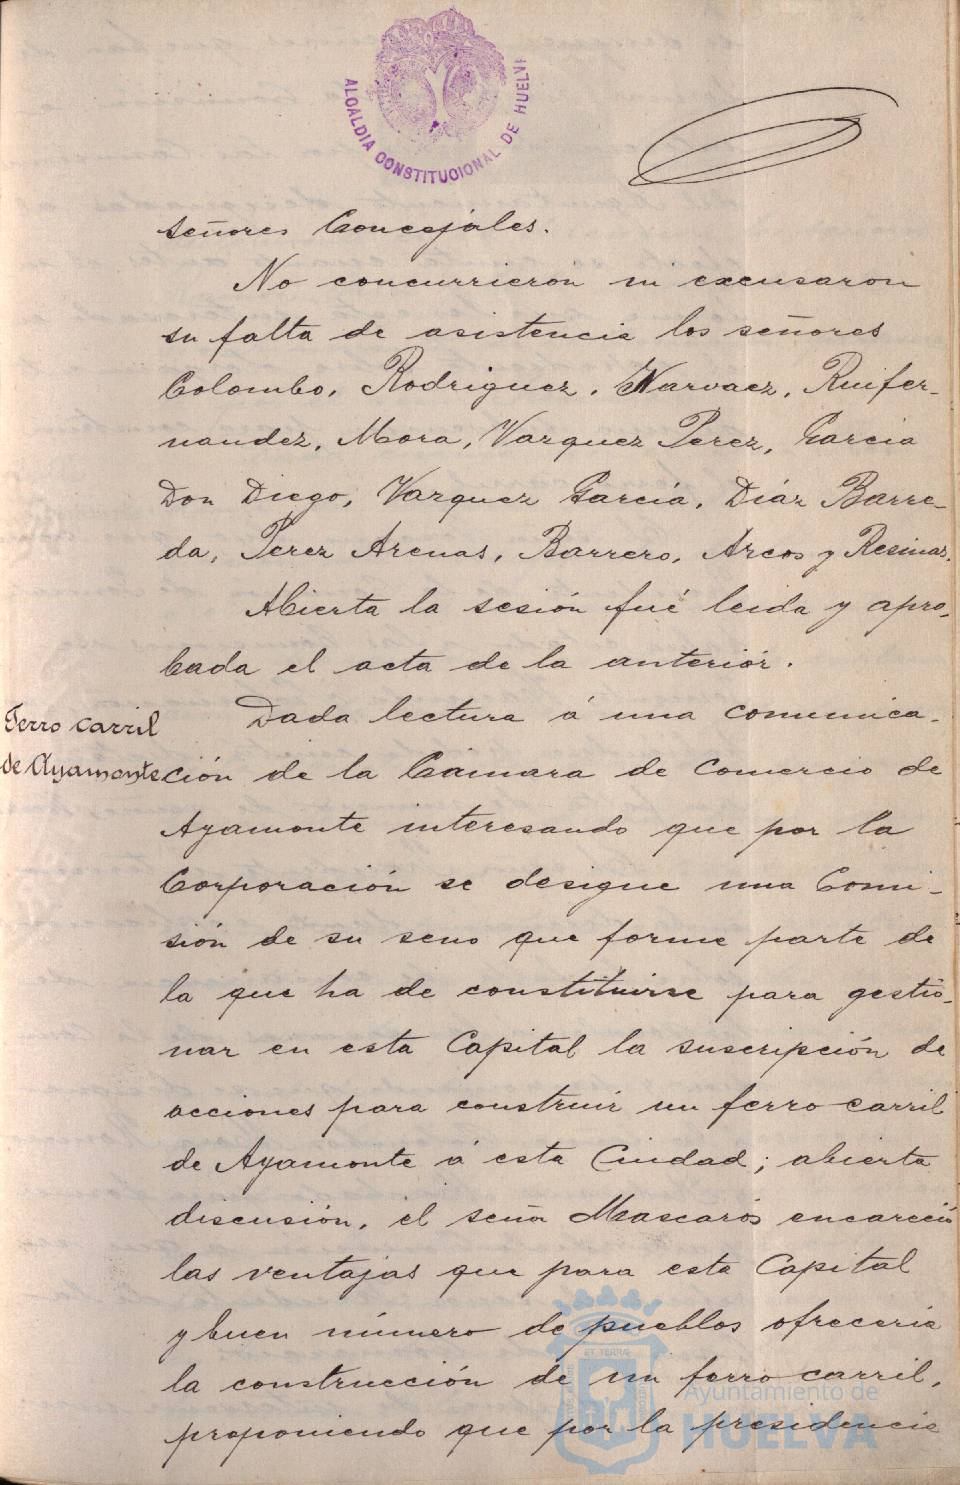 ALCALDIA CONSTITUCIONAL DE HUELVA
señores Concejales.
No concurrieron ni excusaron
su falta de asistencia los señores
Colombo, Rodriguez, Narvaez, Ruifer-
nandez, Mora, Vazquez Perez, Garcia
Don Diego, Vazquez García, Diáz Barre-
da, Perez Arenas, Barrero, Arcos y Resinas.
Abierta la sesión fué leida y apro-
bada el acta de la anteriór.
Ferro carril
de Ayamonte
Dada lectura á una comunica-
ción de la Cámara de Comercio de
Ayamonte interesando que por la
Corporación se designe una Comi-
sión de su seno que forme parte de
la que ha de constituirse para gestio-
nar en esta Capital la suscripción de
acciones para construir un ferro carril
de Ayamonte á esta Ciudad; abierta
discusión, el señor Mascarós encareció
las ventajas que para esta Capital
y buen número de pueblos ofreceria
la construcción de un ferro carril,
proponiendo que por la presidencia
Ayuntamiento de
HUELVA